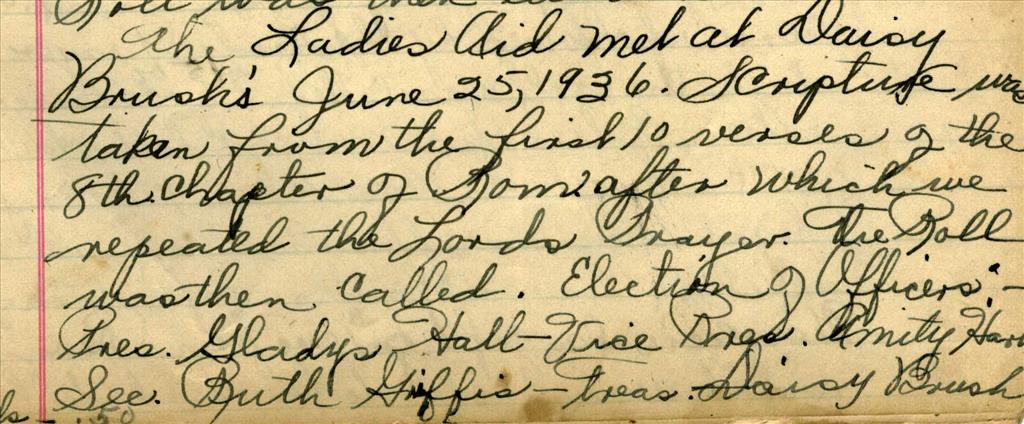 Roll was then
The Ladies Aid met at Daisy
Brush's June 25, 1936. Scripture was
taken from the first 10 verses of the
8th. Chapter of Rom. after which we
repeated the Lords Prayer. The Roll
was then called. Election of Officers:-
Pres. Gladys Hall - Vice Pres. Amity
Sec. Ruth Griffis - Treas. Daisy Brush
.50